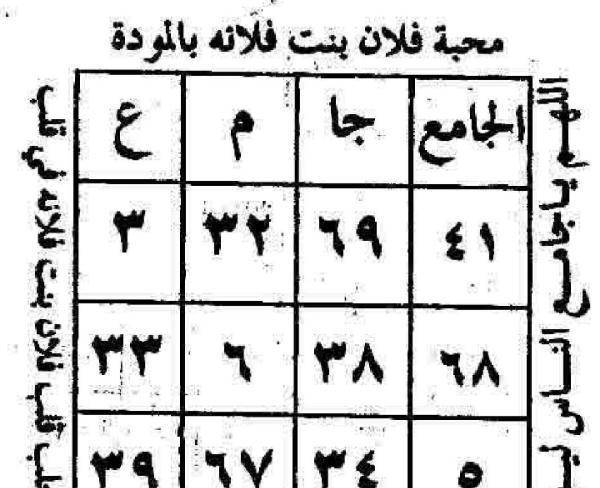 محبة فلان بنت فلانه بالمودة
اللهم يا جامع الناس ليـ
الجامع جا م ع
٤١ ٦٩ ٣٢ ٣
٦٨ ٣٨ ٦ ٣٣
٥ ٣٤ ٦٧ ٣٩
قلب فلان بنت فلانه في قلب